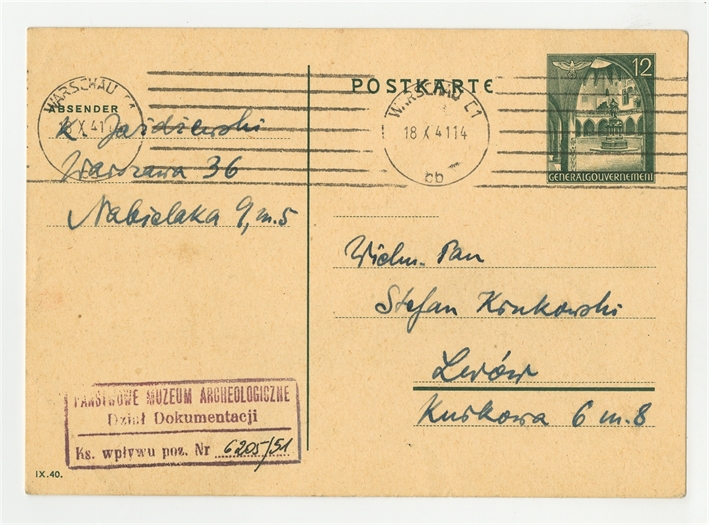 WARSCHAU C1
18 X 41 14
ABSENDER
K Jażdżewski
Warszawa 36
Nabielaka 9, m. 5
POSTKARTE
WARSCHAU C1
18 X 41 14
bb
12
GENERALGOUVERNEMENT
Wielm. Pan
Stefan Krukowski
Lwów
Kurkowa 6 m. 8
PAŃSTWOWE MUZEUM ARCHEOLOGICZNE
Dział Dokumentacji
Ks. wpływu poz. Nr 6205/51
IX.40.